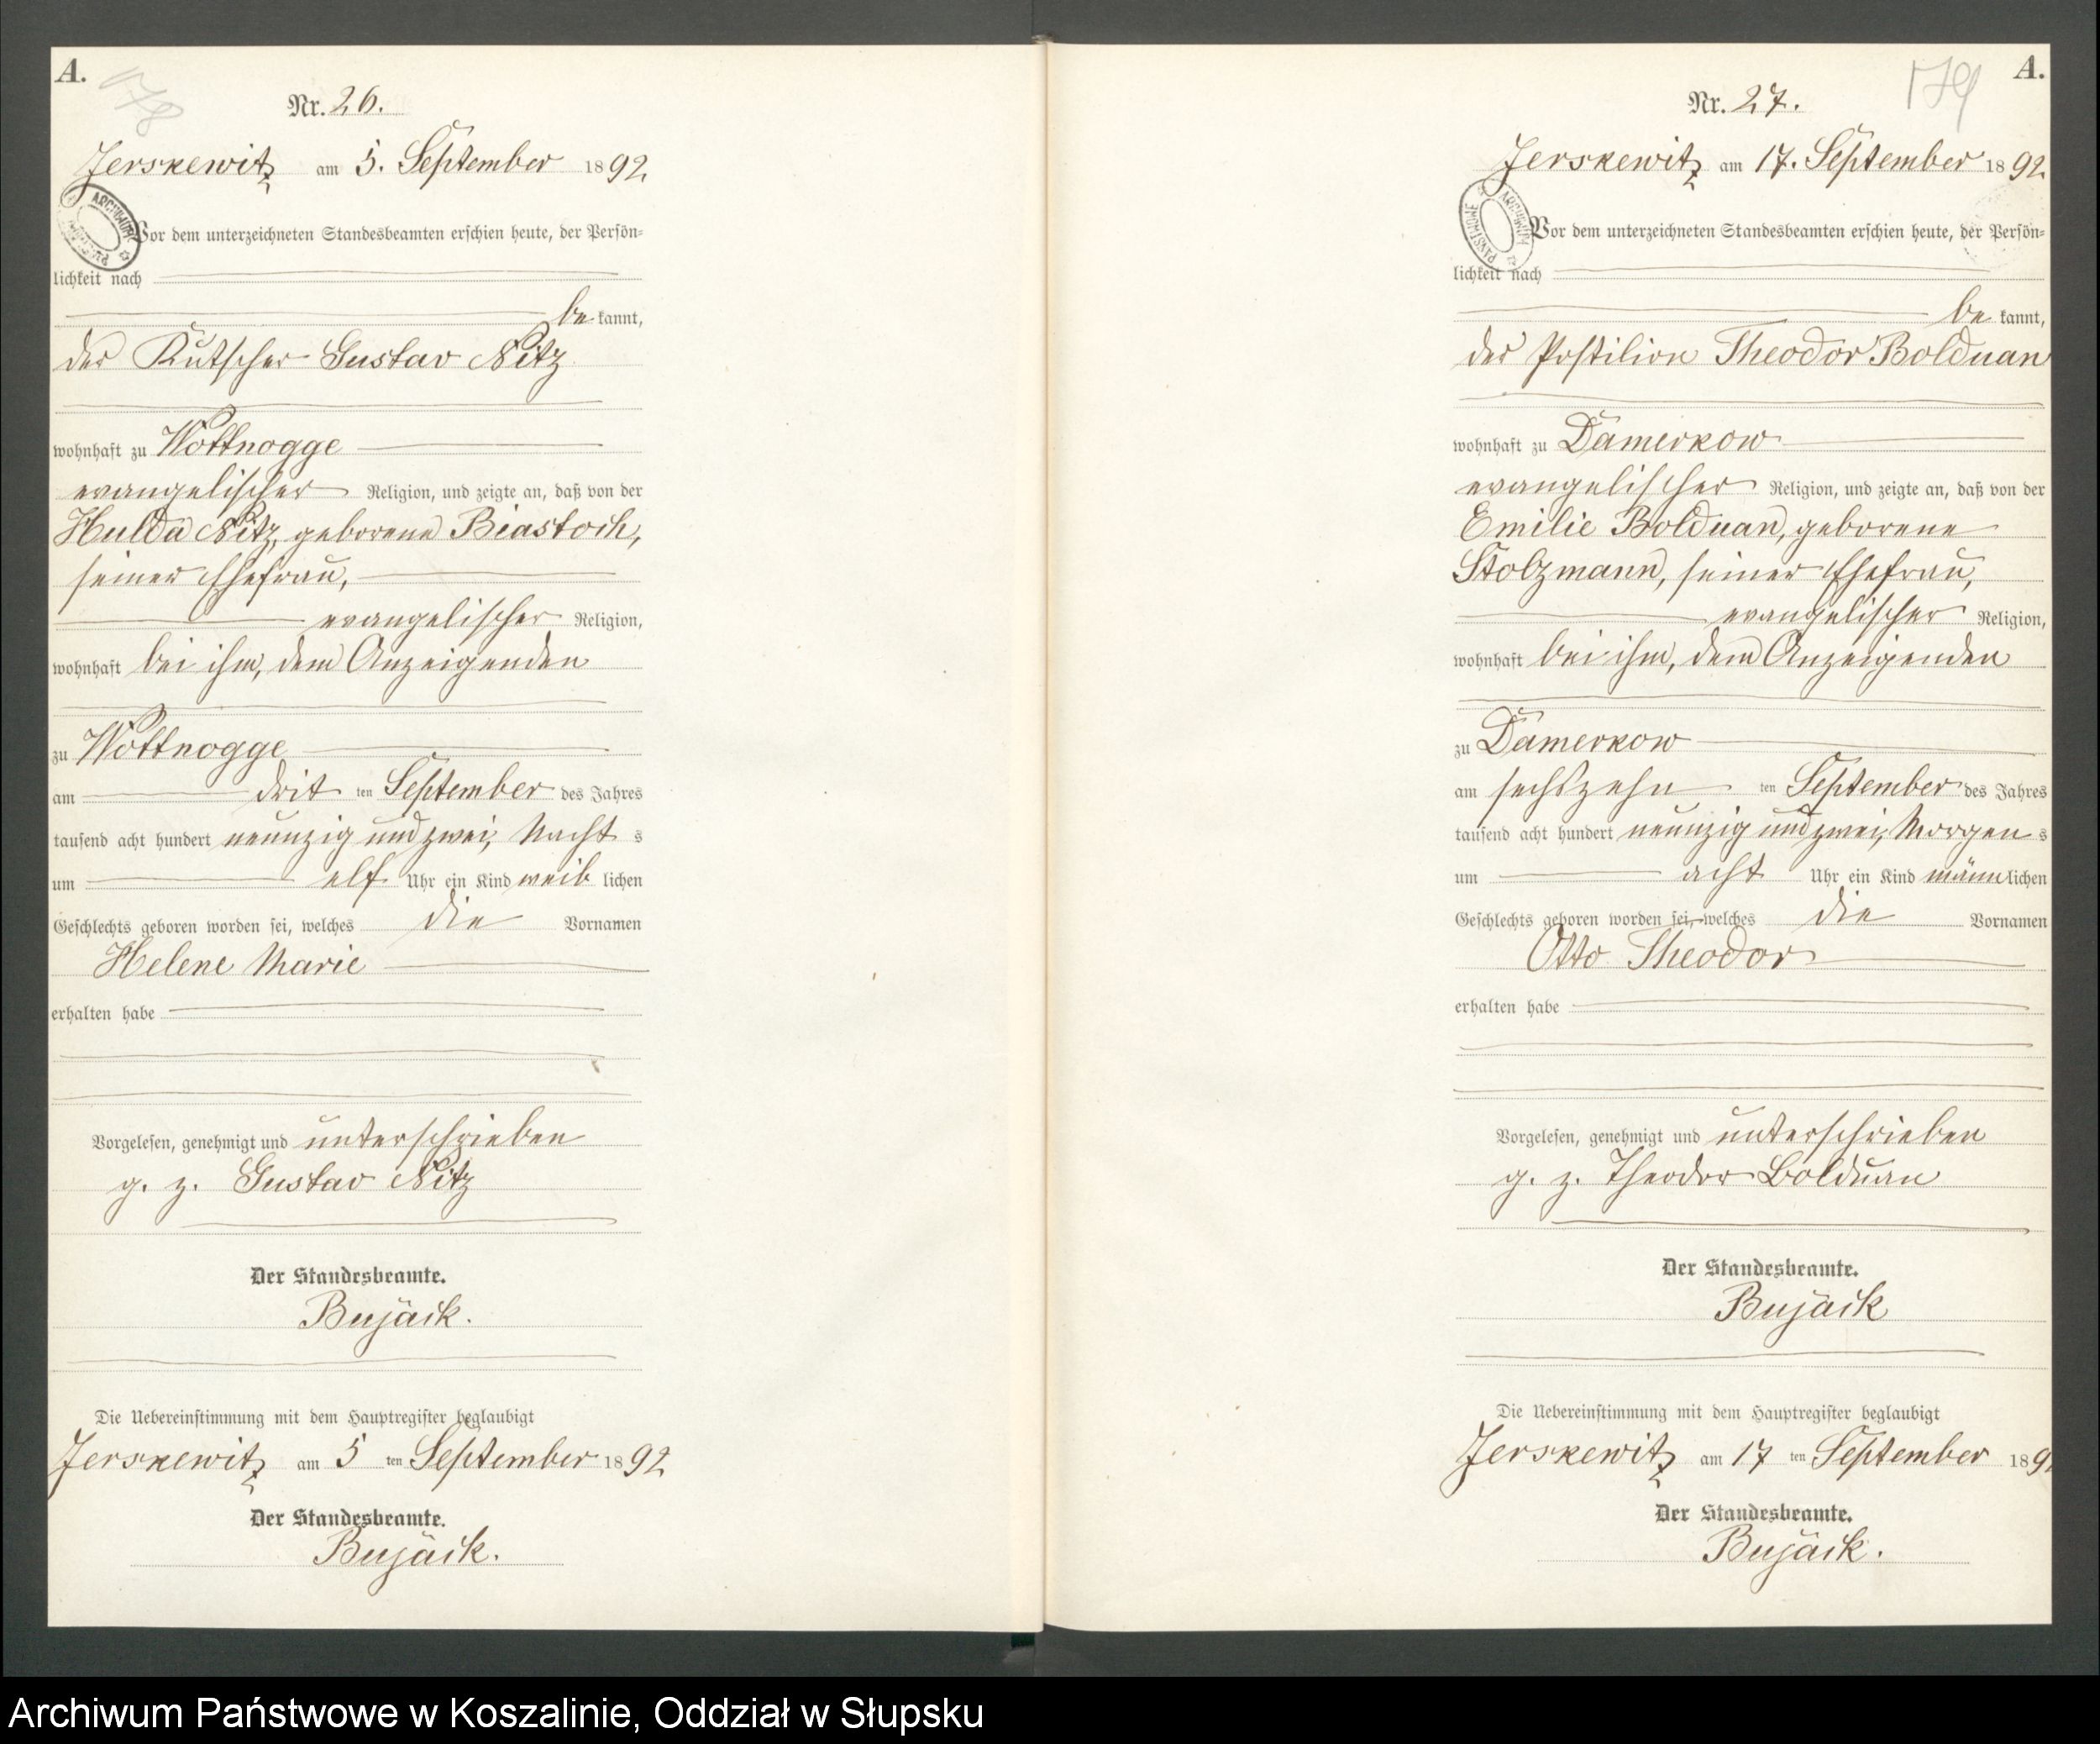 A.
178
Nr. 26.
Jerskewitz am 5. September 1892.
Vor dem unterzeichneten Standesbeamten erschien heute, der Persön-
lichkeit nach
be kannt,
der Kutscher Gustav Nitz
wohnhaft zu Wottnogge
evangelischer Religion, und zeigte an, daß von der
Hulda Nitz, geborene Biastoch,
seiner Ehefrau,
evangelischer Religion,
wohnhaft bei ihm, dem Anzeigenden
zu Wottnogge
am drit ten September des Jahres
tausend acht hundert neunzig und zwei, Nacht s
um elf Uhr ein Kind weib lichen
Geschlechts geboren worden sei, welches die Vornamen
Helene Marie
erhalten habe
Vorgelesen, genehmigt und unterschrieben
g. z. Gustav Nitz
Der Standesbeamte.
Bujack.
Die Uebereinstimmung mit dem Hauptregister beglaubigt
Jerskewitz am 5 ten September 1892
Der Standesbeamte.
Bujack.
A.
179
Nr. 27.
Jerskewitz am 17. September 1892.
ARCHIWUM PAŃSTWOWE
Vor dem unterzeichneten Standesbeamten erschien heute, der Persön-
lichkeit nach
be kannt,
der Postilion Theodor Bolduan
wohnhaft zu Damerkow
evangelischer Religion, und zeigte an, daß von der
Emilie Bolduan, geborene
Stolzmann, seiner Ehefrau,
evangelischer Religion,
wohnhaft bei ihm, dem Anzeigenden
zu Damerkow
am sechszehn ten September des Jahres
tausend acht hundert neunzig und zwei, Morgen s
um acht Uhr ein Kind männ lichen
Geschlechts geboren worden sei, welches die Vornamen
Otto Theodor
erhalten habe
Vorgelesen, genehmigt und unterschrieben
g. z. Theodor Bolduan
Der Standesbeamte.
Bujack
Die Uebereinstimmung mit dem Hauptregister beglaubigt
Jerskewitz am 17 ten September 189
Der Standesbeamte.
Bujack.
Archiwum Państwowe w Koszalinie, Oddział w Słupsku